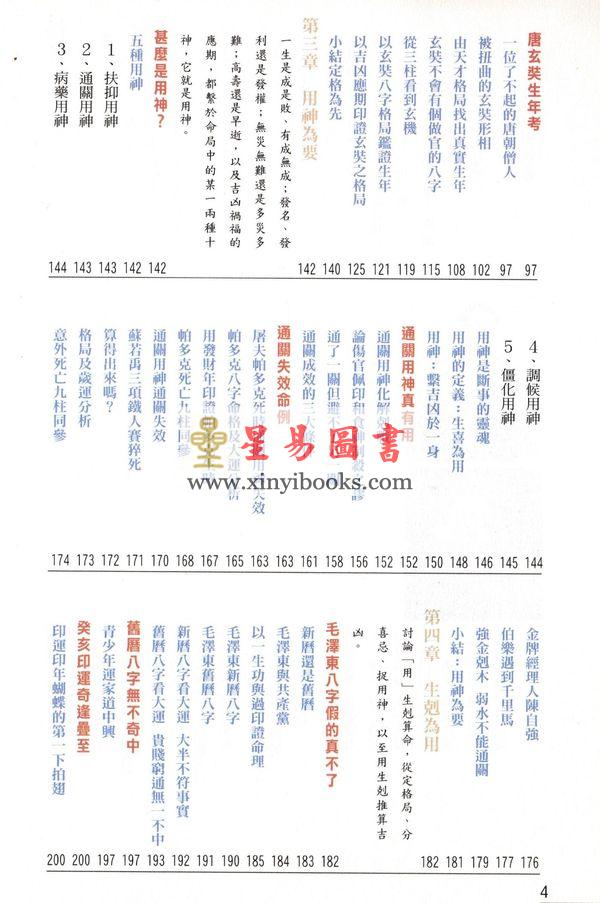 唐玄奘生年考 97
一位了不起的唐朝僧人 97
被扭曲的玄奘形相 102
由天才格局找出真實生年 108
玄奘不會有個做官的八字 115
從三柱看到玄機 119
以玄奘八字格局鑑證生年 121
以吉凶應期印證玄奘之格局 125
小結定格為先 140
第三章 用神為要 142
一生是成是敗、有成無成;發名、發
利還是發權;無災無難還是多災多
難;高壽還是早逝,以及吉凶禍福的
應期,都繫於命局中的某一兩種十
神,它就是用神。
甚麼是用神? 142
五種用神 142
1、扶抑用神 143
2、通關用神 143
3、病藥用神 144
4、調候用神 144
5、僵化用神 145
用神是斷事的靈魂 146
用神的定義:生喜為用 148
用神:繫吉凶於一身 150
通關用神真有用 152
通關用神化解剋 152
論傷官佩印和食神制殺之謬 156
通了一關但 158
通關成效的三大條 161
通關失效命例 163
屠夫帕多克死 用 失效 163
帕多克八字命格及大運分析 165
用發財年印證 167
帕多克死亡九柱同參 168
通關用神通關失效 170
蘇若禹三項鐵人賽猝死 171
算得出來嗎? 172
格局及歲運分析 173
意外死亡九柱同參 174
金牌經理人陳自強 176
伯樂遇到千里馬 177
強金剋木 弱水不能通關 179
小結:用神為要 181
第四章 生剋為用 182
討論「用」生剋算命,從定格局、分
喜忌、捉用神,以至用生剋推算吉
凶。
毛澤東八字假的真不了 182
新曆還是舊曆 183
毛澤東與共產黨 184
以一生功與過印證命理 185
毛澤東新曆八字 190
毛澤東舊曆八字 191
新曆八字看大運 大半不符事實 192
舊曆八字看大運 貴賤窮通無一不中 193
舊曆八字無不奇中 197
青少年運家道中興 197
癸亥印運奇逢疊至 200
印運印年蝴蝶的第一下拍翅 200
4
星易圖書
www.xinyibooks.com